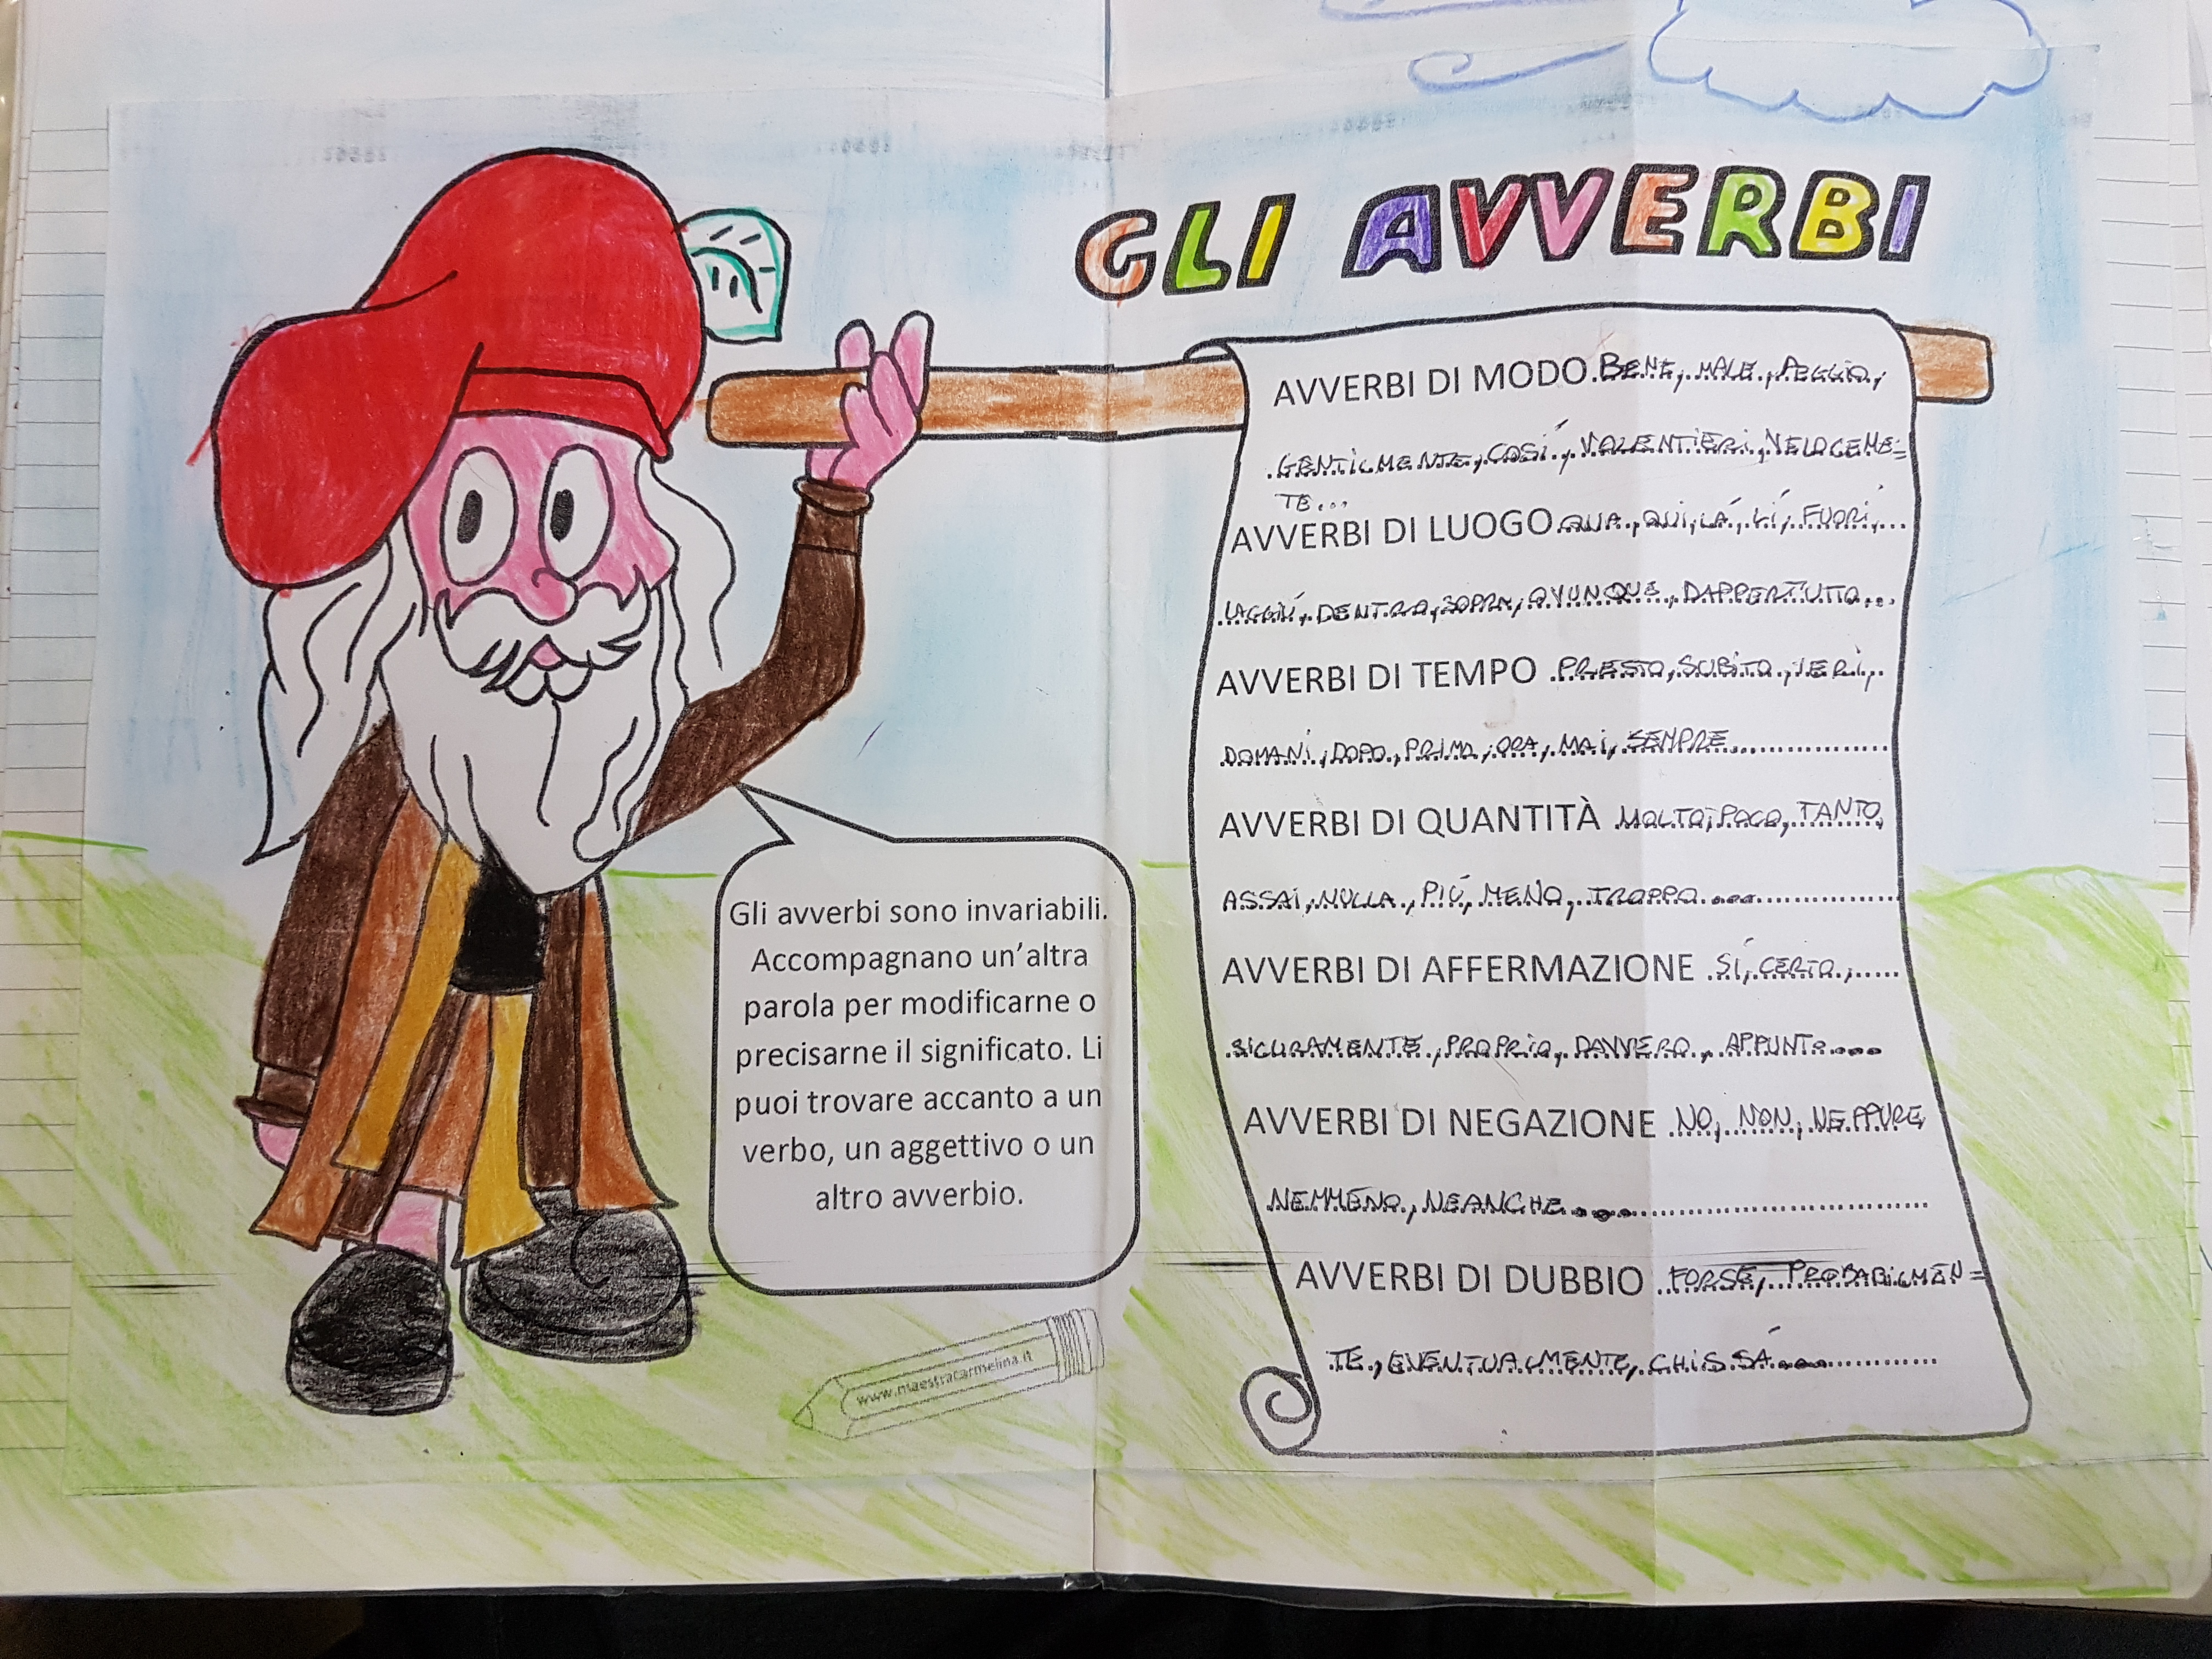 GLI AVVERBI
AVVERBI DI MODO BENE, MALE, PEGGIO,
GENTILMENTE, COSÍ, VOLENTIERI, VELOCEME=
TE...
AVVERBI DI LUOGO QUA, QUI, LÁ, LÍ, FUORI,...
LAGGIÚ, DENTRO, SOPRA, OVUNQUE, DAPPERTUTTO...
AVVERBI DI TEMPO PRESTO, SUBITO, IERI,
DOMANI, DOPO, PRIMA, ORA, MAI, SEMPRE...
AVVERBI DI QUANTITÀ MOLTO, POCO, TANTO,
ASSAI, NULLA, PIÚ, MENO, TROPPO...
AVVERBI DI AFFERMAZIONE SÍ, CERTO,
SICURAMENTE, PROPRIO, DAVVERO, APPUNTO...
AVVERBI DI NEGAZIONE NO, NON, NEPPURE,
NEMMENO, NEANCHE...
AVVERBI DI DUBBIO FORSE, PROBABILMEN=
TE, EVENTUALMENTE, CHISSÁ...
Gli avverbi sono invariabili.
Accompagnano un'altra
parola per modificarne o
precisarne il significato. Li
puoi trovare accanto a un
verbo, un aggettivo o un
altro avverbio.
www.maestracarmelina.it